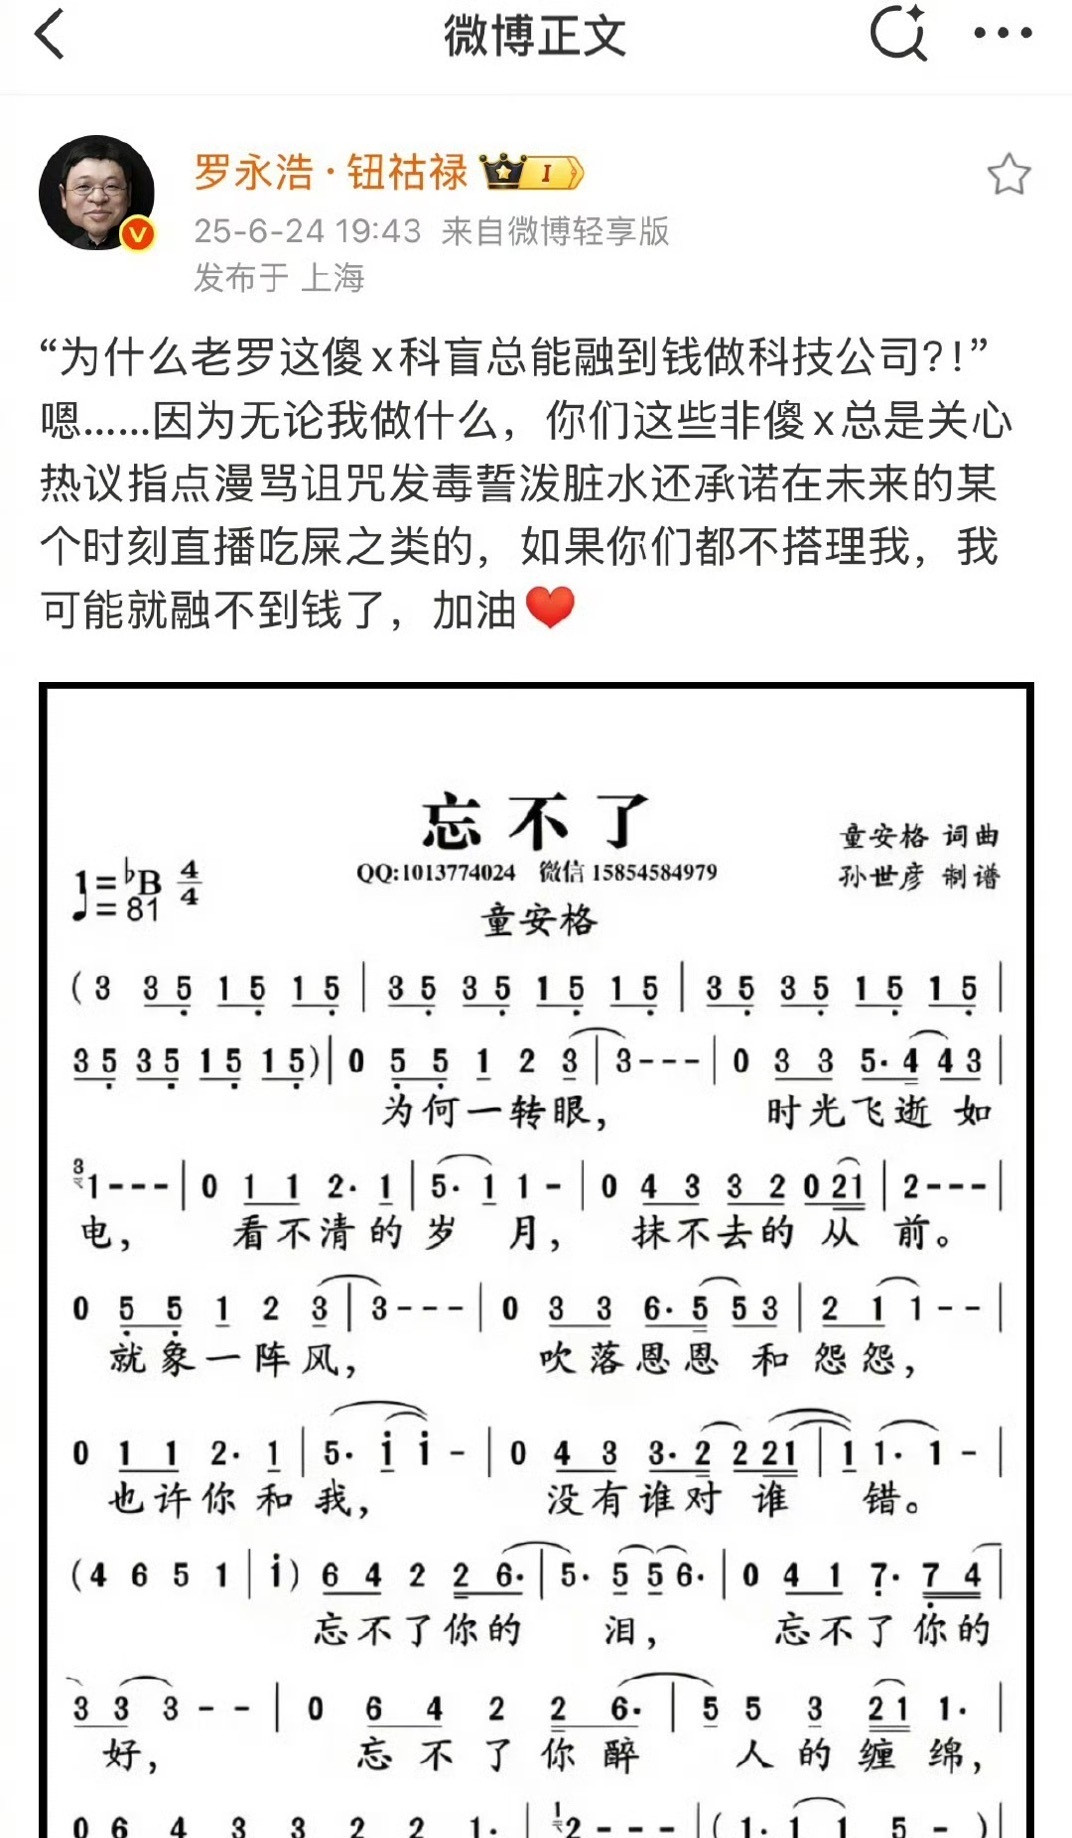 微博正文
罗永浩·钮祜禄 I
25-6-24 19:43 来自微博轻享版
发布于 上海
“为什么老罗这傻x科盲总能融到钱做科技公司?!”
嗯……因为无论我做什么，你们这些非傻x总是关心
热议指点漫骂诅咒发毒誓泼脏水还承诺在未来的某
个时刻直播吃屎之类的，如果你们都不搭理我，我
可能就融不到钱了，加油❤️
忘不了
童安格 词曲
QQ:1013774024 微信 15854584979
孙世彦 制谱
1=♭B 4/4
♩=81
童安格
(3 3 5 1 5 1 5 | 3 5 3 5 1 5 1 5 | 3 5 3 5 1 5 1 5 |
3 5 3 5 1 5 1 5)| 0 5 5 1 2 3 | 3 - - - | 0 3 3 5· 4 4 3 |
为何一转眼， 时光飞逝 如
3 1 - - - | 0 1 1 2· 1 | 5· 1 1 - | 0 4 3 3 2 0 2 1 | 2 - - - |
电， 看不清的岁 月， 抹不去的 从 前。
0 5 5 1 2 3 | 3 - - - | 0 3 3 6· 5 5 3 | 2 1 1 - - |
就象一阵风， 吹落恩恩 和 怨怨，
0 1 1 2· 1 | 5· i i - | 0 4 3 3· 2 2 2 1 | 1 1· 1 - |
也许你 和 我， 没有谁对 谁 错。
(4 6 5 1 | i) 6 4 2 2 6· | 5· 5 5 6· | 0 4 1 7· 7 4 |
忘不了你的 泪， 忘不了 你的
3 3 3 - - | 0 6 4 2 2 6· | 5 5 3 2 1 1· |
好， 忘不了你醉 人的缠绵，
0 6 4 3 3 2 2 1· | 1 2 - - - | (1· 1 1 5 - )|